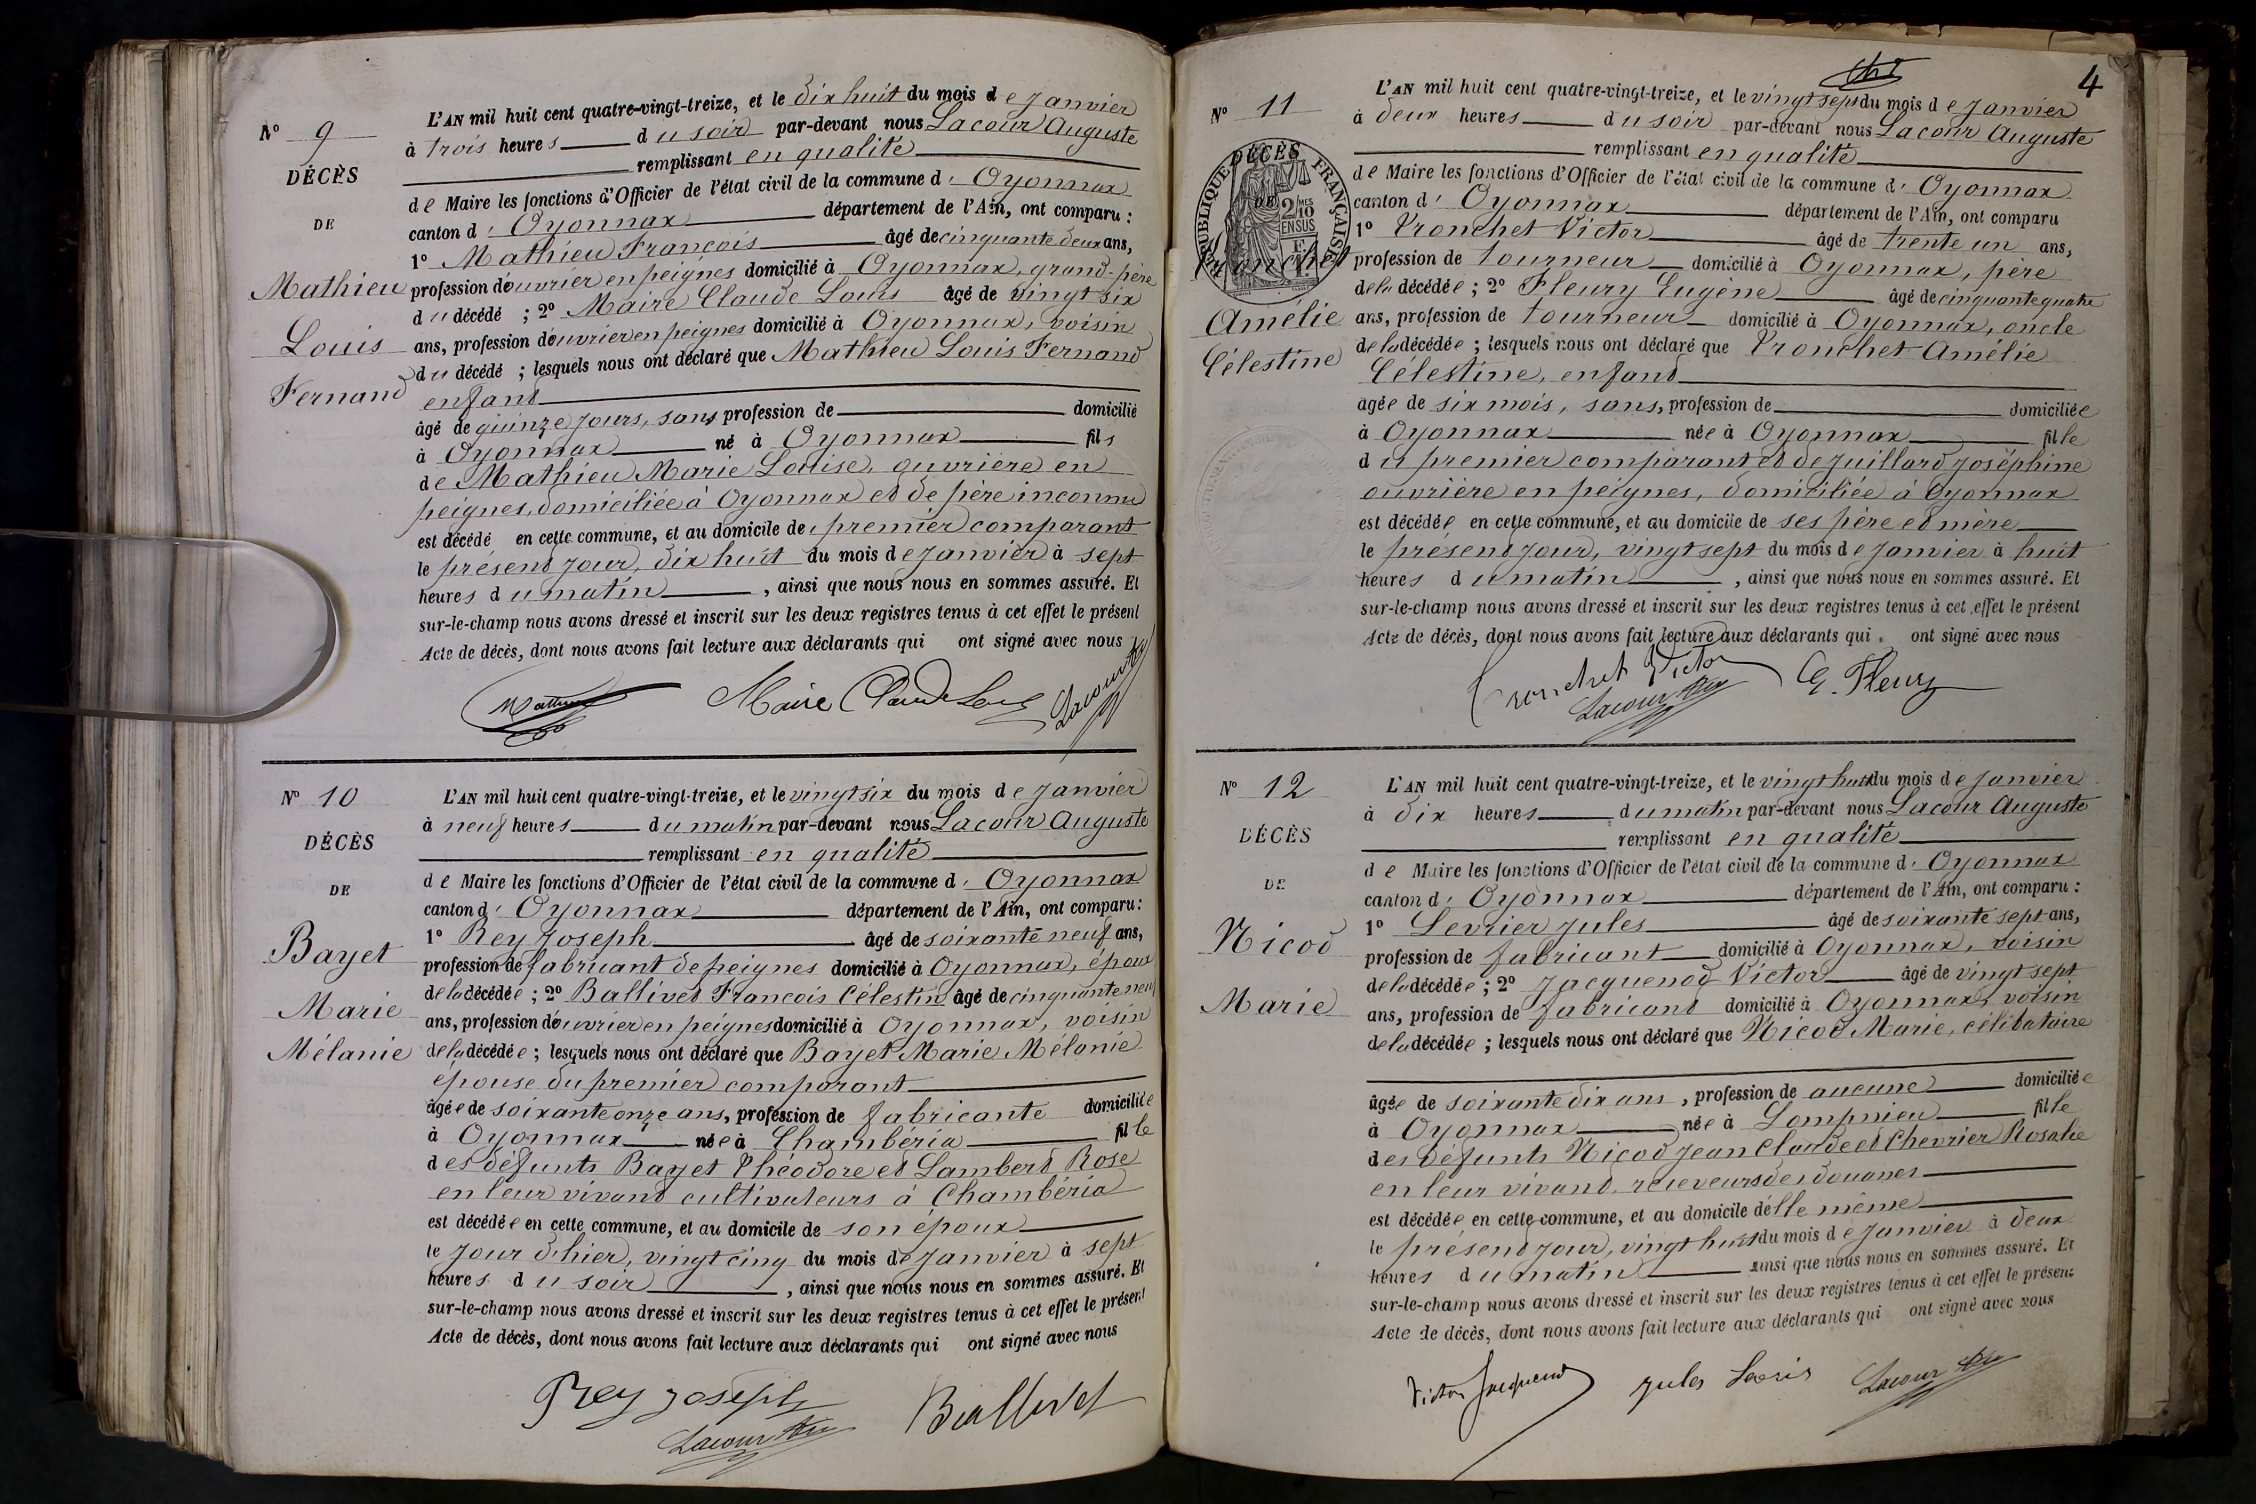 N° 9
DÉCÈS
DE
Mathieu
Louis
Fernand
L'AN mil huit cent quatre-vingt-treize, et le dix huit du mois de Janvier
à trois heures du soir par-devant nous Lacour Auguste
remplissant en qualité
de Maire les fonctions d'Officier de l'état civil de la commune d' Oyonnax
canton d' Oyonnax département de l'Ain, ont comparu :
1° Mathieu François âgé de cinquante deux ans,
profession d'ouvrier en peignes domicilié à Oyonnax, grand-père
du décédé ; 2° Maire Claude Louis âgé de vingt six
ans, profession d'ouvrier en peignes domicilié à Oyonnax, voisin
du décédé ; lesquels nous ont déclaré que Mathieu Louis Fernand
enfant
âgé de quinze jours, sans profession de domicilié
à Oyonnax né à Oyonnax fils
de Mathieu Marie Louise, ouvrière en
peignes, domiciliée à Oyonnax et de père inconnu
est décédé en cette commune, et au domicile de premier comparant
le présent jour, dix huit du mois de Janvier à sept
heures du matin, ainsi que nous nous en sommes assuré. Et
sur-le-champ nous avons dressé et inscrit sur les deux registres tenus à cet effet le présent
Acte de décès, dont nous avons fait lecture aux déclarants qui ont signé avec nous
Mathieu Maire Claude Louis Lacour Ate
N° 10
DÉCÈS
DE
Bayet
Marie
Mélanie
L'AN mil huit cent quatre-vingt-treize, et le vingt six du mois de Janvier
à neuf heures du matin par-devant nous Lacour Auguste
remplissant en qualité
de Maire les fonctions d'Officier de l'état civil de la commune d' Oyonnax
canton d' Oyonnax département de l'Ain, ont comparu :
1° Rey Joseph âgé de soixante neuf ans,
profession de fabricant de peignes domicilié à Oyonnax, époux
de la décédée ; 2° Ballivet François Célestin âgé de cinquante neuf
ans, profession d'ouvrier en peignes domicilié à Oyonnax, voisin
de la décédée ; lesquels nous ont déclaré que Bayet Marie Mélanie
épouse du premier comparant
âgée de soixante onze ans, profession de fabricante domiciliée
à Oyonnax née à Chambéria fille
des défunts Bayet Théodore et Lambert Rose
en leur vivant cultivateurs à Chambéria
est décédée en cette commune, et au domicile de son époux
le jour d'hier, vingt cinq du mois de Janvier à sept
heures du soir, ainsi que nous nous en sommes assuré. Et
sur-le-champ nous avons dressé et inscrit sur les deux registres tenus à cet effet le présent
Acte de décès, dont nous avons fait lecture aux déclarants qui ont signé avec nous
Rey Joseph Ballivet
Lacour Ate
4
N° 11
DÉCÈS
DE
RÉPUBLIQUE FRANÇAISE
2/10 MES
EN SUS
Amélie
Célestine
L'AN mil huit cent quatre-vingt-treize, et le vingt sept du mois de Janvier
à deux heures du soir par-devant nous Lacour Auguste
remplissant en qualité
de Maire les fonctions d'Officier de l'état civil de la commune d' Oyonnax
canton d' Oyonnax département de l'Ain, ont comparu
1° Tronchet Victor âgé de trente un ans,
profession de tourneur domicilié à Oyonnax, père
de la décédée ; 2° Fleury Eugène âgé de cinquante quatre
ans, profession de tourneur domicilié à Oyonnax, oncle
de la décédée ; lesquels nous ont déclaré que Tronchet Amélie
Célestine, enfant
âgée de six mois, sans, profession de domiciliée
à Oyonnax née à Oyonnax fille
du premier comparant et de Juillard Joséphine
ouvrière en peignes, domiciliée à Oyonnax
est décédée en cette commune, et au domicile de ses père et mère
le présent jour, vingt sept du mois de Janvier à huit
heures du matin, ainsi que nous nous en sommes assuré. Et
sur-le-champ nous avons dressé et inscrit sur les deux registres tenus à cet effet le présent
Acte de décès, dont nous avons fait lecture aux déclarants qui ont signé avec nous
Tronchet Victor E. Fleury
Lacour Ate
N° 12
DÉCÈS
DE
Nicod
Marie
L'AN mil huit cent quatre-vingt-treize, et le vingt huit du mois de Janvier
à dix heures du matin par-devant nous Lacour Auguste
remplissant en qualité
de Maire les fonctions d'Officier de l'état civil de la commune d' Oyonnax
canton d' Oyonnax département de l'Ain, ont comparu :
1° Levrier Jules âgé de soixante sept ans,
profession de fabricant domicilié à Oyonnax, voisin
de la décédée ; 2° Jacquenod Victor âgé de vingt sept
ans, profession de fabricant domicilié à Oyonnax, voisin
de la décédée ; lesquels nous ont déclaré que Nicod Marie, célibataire
âgée de soixante dix ans, profession de aucune domiciliée
à Oyonnax née à Lompnieu fille
des défunts Nicod Jean Claude et Chevrier Rosalie
en leur vivant, receveurs des douanes
est décédée en cette commune, et au domicile d'elle même
le présent jour, vingt huit du mois de Janvier à deux
heures du matin ainsi que nous nous en sommes assuré. Et
sur-le-champ nous avons dressé et inscrit sur les deux registres tenus à cet effet le présent
Acte de décès, dont nous avons fait lecture aux déclarants qui ont signé avec nous
Victor Jacquenod Jules Lacour Ate